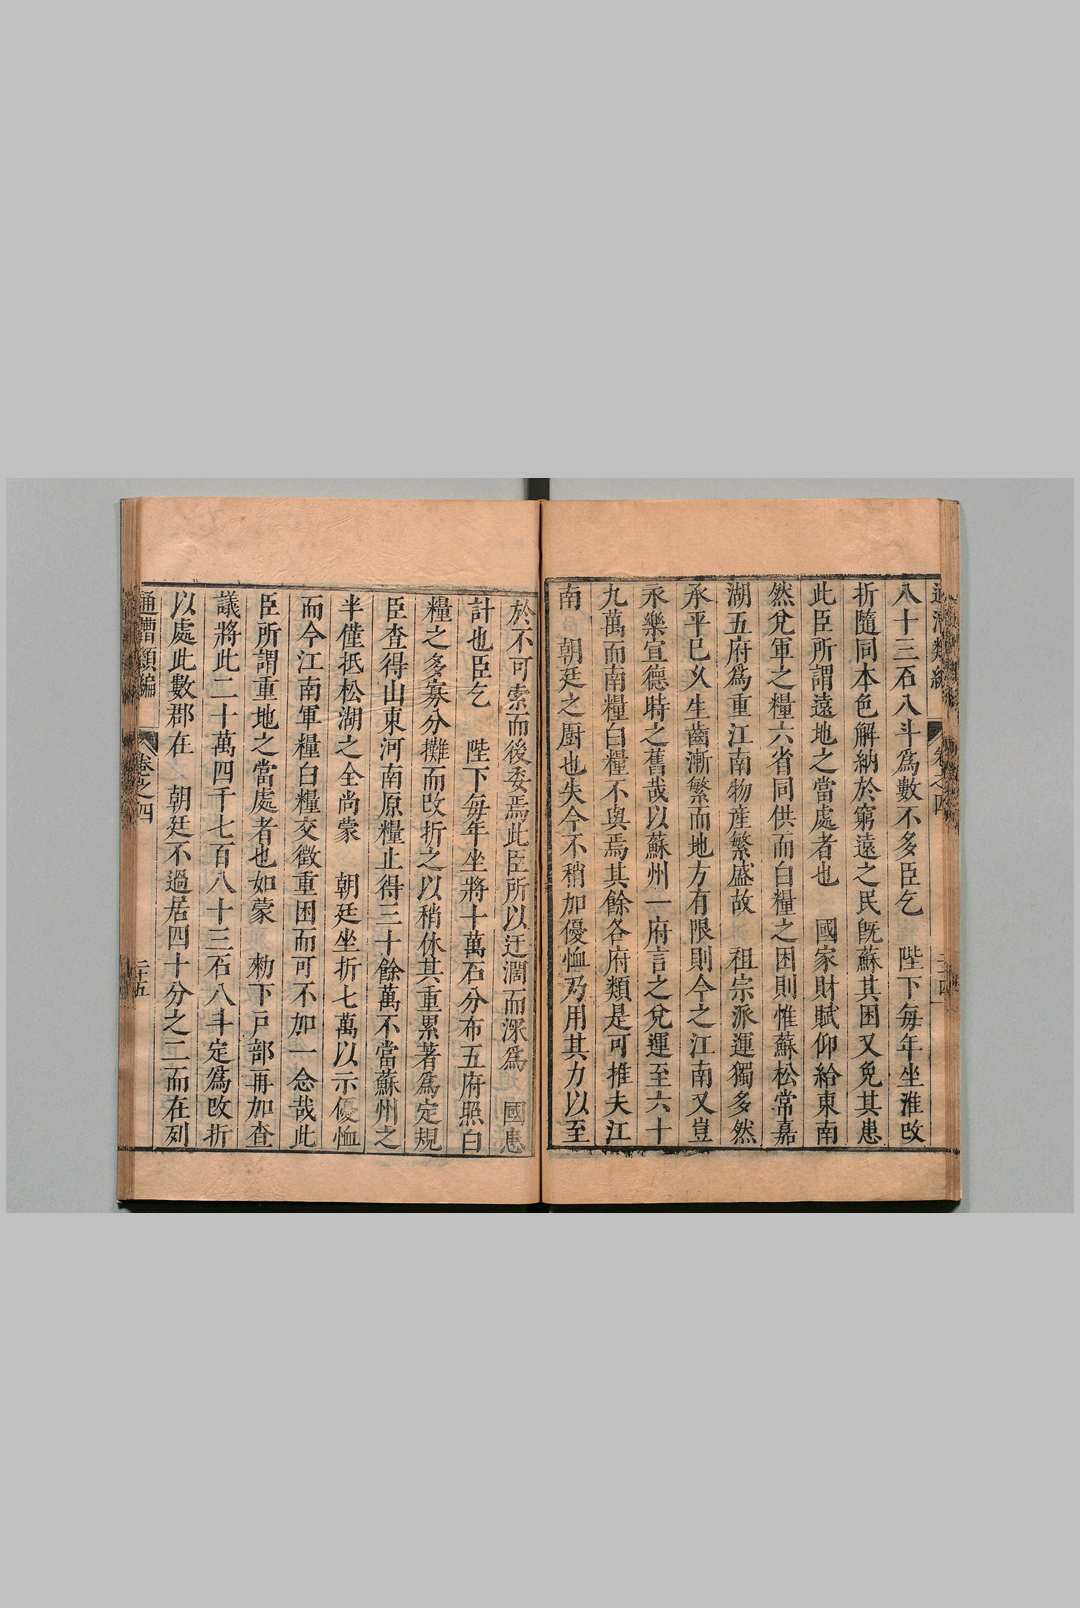 八十三石八斗爲數不多臣乞　陛下每年坐淮改
折隨同本色解納於窮遠之民旣蘇其困又免其患
此臣所謂遠地之當處者也　國家財賦仰給東南
然兌軍之糧六省同供而白糧之困則惟蘇松常嘉
湖五府爲重江南物産繁盛故　祖宗派運獨多然
承平已乆生齒漸繁而地方有限則今之江南又豈
永樂宣德時之舊哉以蘇州一府言之兌運至六十
九萬而南糧白糧不與焉其餘各府類是可推夫江
南　朝廷之厨也失今不稍加優恤乃用其力以至
於不可索而後委焉此臣所以迂濶而深爲　國患
計也臣乞　陛下每年坐將十萬石分布五府照白
糧之多寡分攤而改折之以稍休其重累著爲定規
臣查得山東河南原糧止得三十餘萬不當蘇州之
半僅抵松湖之全尚蒙　朝廷坐折七萬以示優恤
而今江南軍糧白糧交徵重困而可不加一念哉此
臣所謂重地之當處者也如蒙　勑下戸部再加查
議將此二十萬四千七百八十三石八斗定爲改折
以處此數郡在　朝廷不過居四十分之二而在列
通漕類編　卷之四　二十五